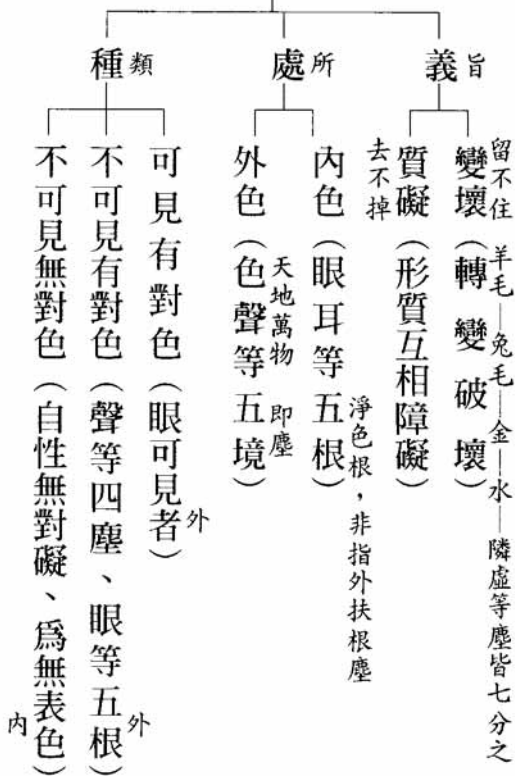 義旨
變壞（轉變破壞）
留不住
羊毛—兔毛—金—水—隣虛等塵皆七分之
質礙（形質互相障礙）
去不掉
處所
內色（眼耳等五根）
淨色根，非指外扶根塵
外色（色聲等五境）
天地萬物　即塵
種類
可見有對色（眼可見者）
外
不可見有對色（聲等四塵、眼等五根）
外
不可見無對色（自性無對礙、爲無表色）
內